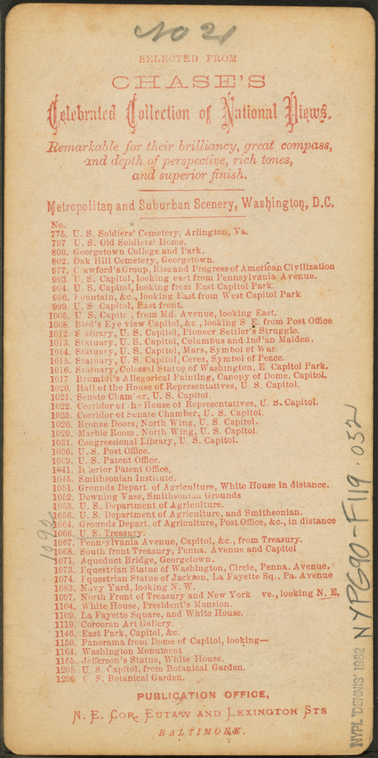 No 21
SELECTED FROM
CHASE'S
Celebrated Collection of National Views.
Remarkable for their brilliancy, great compass,
and depth of perspective, rich tones,
and superior finish.
Metropolitan and Suburban Scenery, Washington, D.C.
No.
775, U. S. Soldiers' Cemetery, Arlington, Va.
797 U. S. Old Soldiers' Home.
800, Georgetown College and Park.
802. Oak Hill Cemetery, Georgetown.
977. Crawford's Group, Rise and Progress of American Civilization
993 U. S. Capitol, looking east from Pennsylvania Avenue.
994. U. S. Capitol, looking from East Capitol Park.
996. Fountain, &c., looking East from West Capitol Park
999 U. S. Capitol, East front.
1005. U. S. Capitol, from Md. Avenue, looking East.
1008. Bird's Eye view Capitol, &c., looking S. E. from Post Office
1012. Statuary, U. S. Capitol, Pioneer Settler's Struggle.
1013. Statuary, U. S. Capitol, Columbus and Indian Maiden.
1014. Statuary, U. S. Capitol, Mars, Symbol of War.
1015. Statuary, U. S. Capitol, Ceres, Symbol of Peace.
1016. Statuary, Colossal Statue of Washington, E Capitol Park.
1017 Brumidi's Allegorical Painting, Canopy of Dome, Capitol.
1020. Hall of the House of Representatives, U. S. Capitol.
1021. Senate Chamber, U. S. Capitol.
1022. Corridor of the House of Representatives, U. S. Capitol.
1025. Corridor of Senate Chamber, U. S. Capitol.
1026. Bronze Doors, North Wing, U. S. Capitol.
1029. Marble Room, North Wing, U. S. Capitol.
1031. Congressional Library, U. S. Capitol.
1036. U. S. Post Office.
1039. U. S. Patent Office.
1041. Interior Patent Office.
1045. Smithsonian Institute.
1051. Grounds Depart. of Agriculture, White House in distance.
1052. Downing Vase, Smithsonian Grounds
1053. U. S. Department of Agriculture.
1056. U. S. Department of Agriculture, and Smithsonian.
1064. Grounds Depart. of Agriculture, Post Office, &c., in distance
1066. U. S. Treasury.
1067. Pennsylvania Avenue, Capitol, &c., from Treasury.
1068. South front Treasury, Penna. Avenue and Capitol
1071. Aqueduct Bridge, Georgetown.
1073. Equestrian Statue of Washington, Circle, Penna. Avenue.
1074. Equestrian Statue of Jackson, La Fayette Sq., Pa. Avenue
1083. Navy Yard, looking N. W.
1097. North Front of Treasury and New York ve., looking N. E.
1104. White House, President's Mansion.
1109. La Fayette Square, and White House.
1119. Corcoran Art Gallery.
1146. East Park, Capitol, &c.
1150. Panorama from Dome of Capitol, looking—
1164. Washington Monument
1165. Jefferson's Statue, White House.
1205 U. S. Capitol, from Botanical Garden.
1206 U. S. Botanical Garden.
PUBLICATION OFFICE,
N. E. COR. EUTAW AND LEXINGTON STS
BALTIMORE.
NYPG90-F119.052
NYPL 'DENNIS' 1982